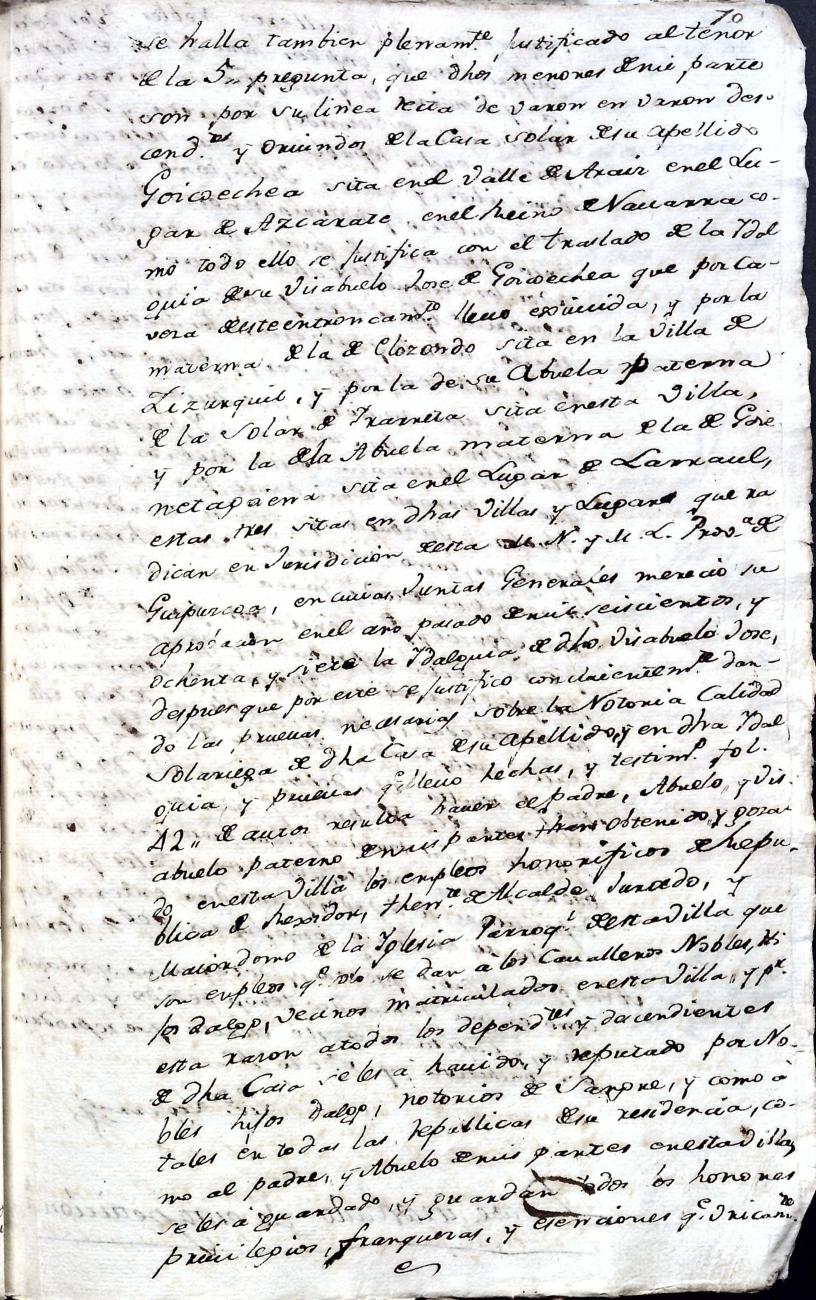 70
se halla tambien plenam.te justificado al tenor
de la 5,, pregunta, que dhos menores de mi parte
son por su linea recta de varon en varon des-
cend.tes y oriundos de la Casa solar de su apellido
Goicoechea sita en el Valle de Araiz en el Lu-
gar de Azcarate en el Reino de Navarra co-
mo todo ello se justifica con el traslado de la Ydal
guia de su Visabuelo Jose de Goicoechea que por ca-
vera de este entroncam.to llevo exivida, y por la
materna de la de Elozondo sita en la Villa de
Zizurquil, y por la de su Abuela Paterna
de la Solar de Yrarreta sita en esta Villa,
y por la de la Abuela materna de la de Goie
netagaena sita en el Lugar de Larraul,
estas tres sitas en dhas Villas y Lugares que ra
dican en Jurisdicion de esta M. N. y M. L. Prov.a de
Guipuzcoa, en cuias Juntas Generales merecio su
aprobacion en el año pasado de mil seiscientos, y
ochenta, y siete la Ydalguia de dho Visabuelo Jose,
despues que por este se justifico concluientem.te dan-
do las pruevas necesarias sobre la Notoria Calidad
Solariega de dha Casa de su apellido, y en dha Ydal
guia, y pruevas q.e llevo hechas, y testim.o fol.
42,, de autos resulta haver el padre, Abuelo, y Vis-
abuelo paterno de mis partes obtenido, y goza
do en esta Villa los empleos honorificos de Repu-
blica de Rexidor, then.te de Alcalde, Jurado, y
Maiordomo de la Yglesia Parroq.l de esta Villa que
son empleos q.e solo se dan a los Cavalleros Nobles, hi
jos dalgo, vecinos matriculados en esta Villa, y p.r
esta razon a todos los depend.tes y decendientes
de dha Casa se les a havido, y reputado por No-
bles hijos dalgo, notorios de Sangre, y como a
tales en todas las republicas de su residencia, co-
mo al padre, y Abuelo de mis partes en esta Villa,
se les a guardado, y guardan todos los honores
privilegios, franquezas, y esenciones q.e unicam.te